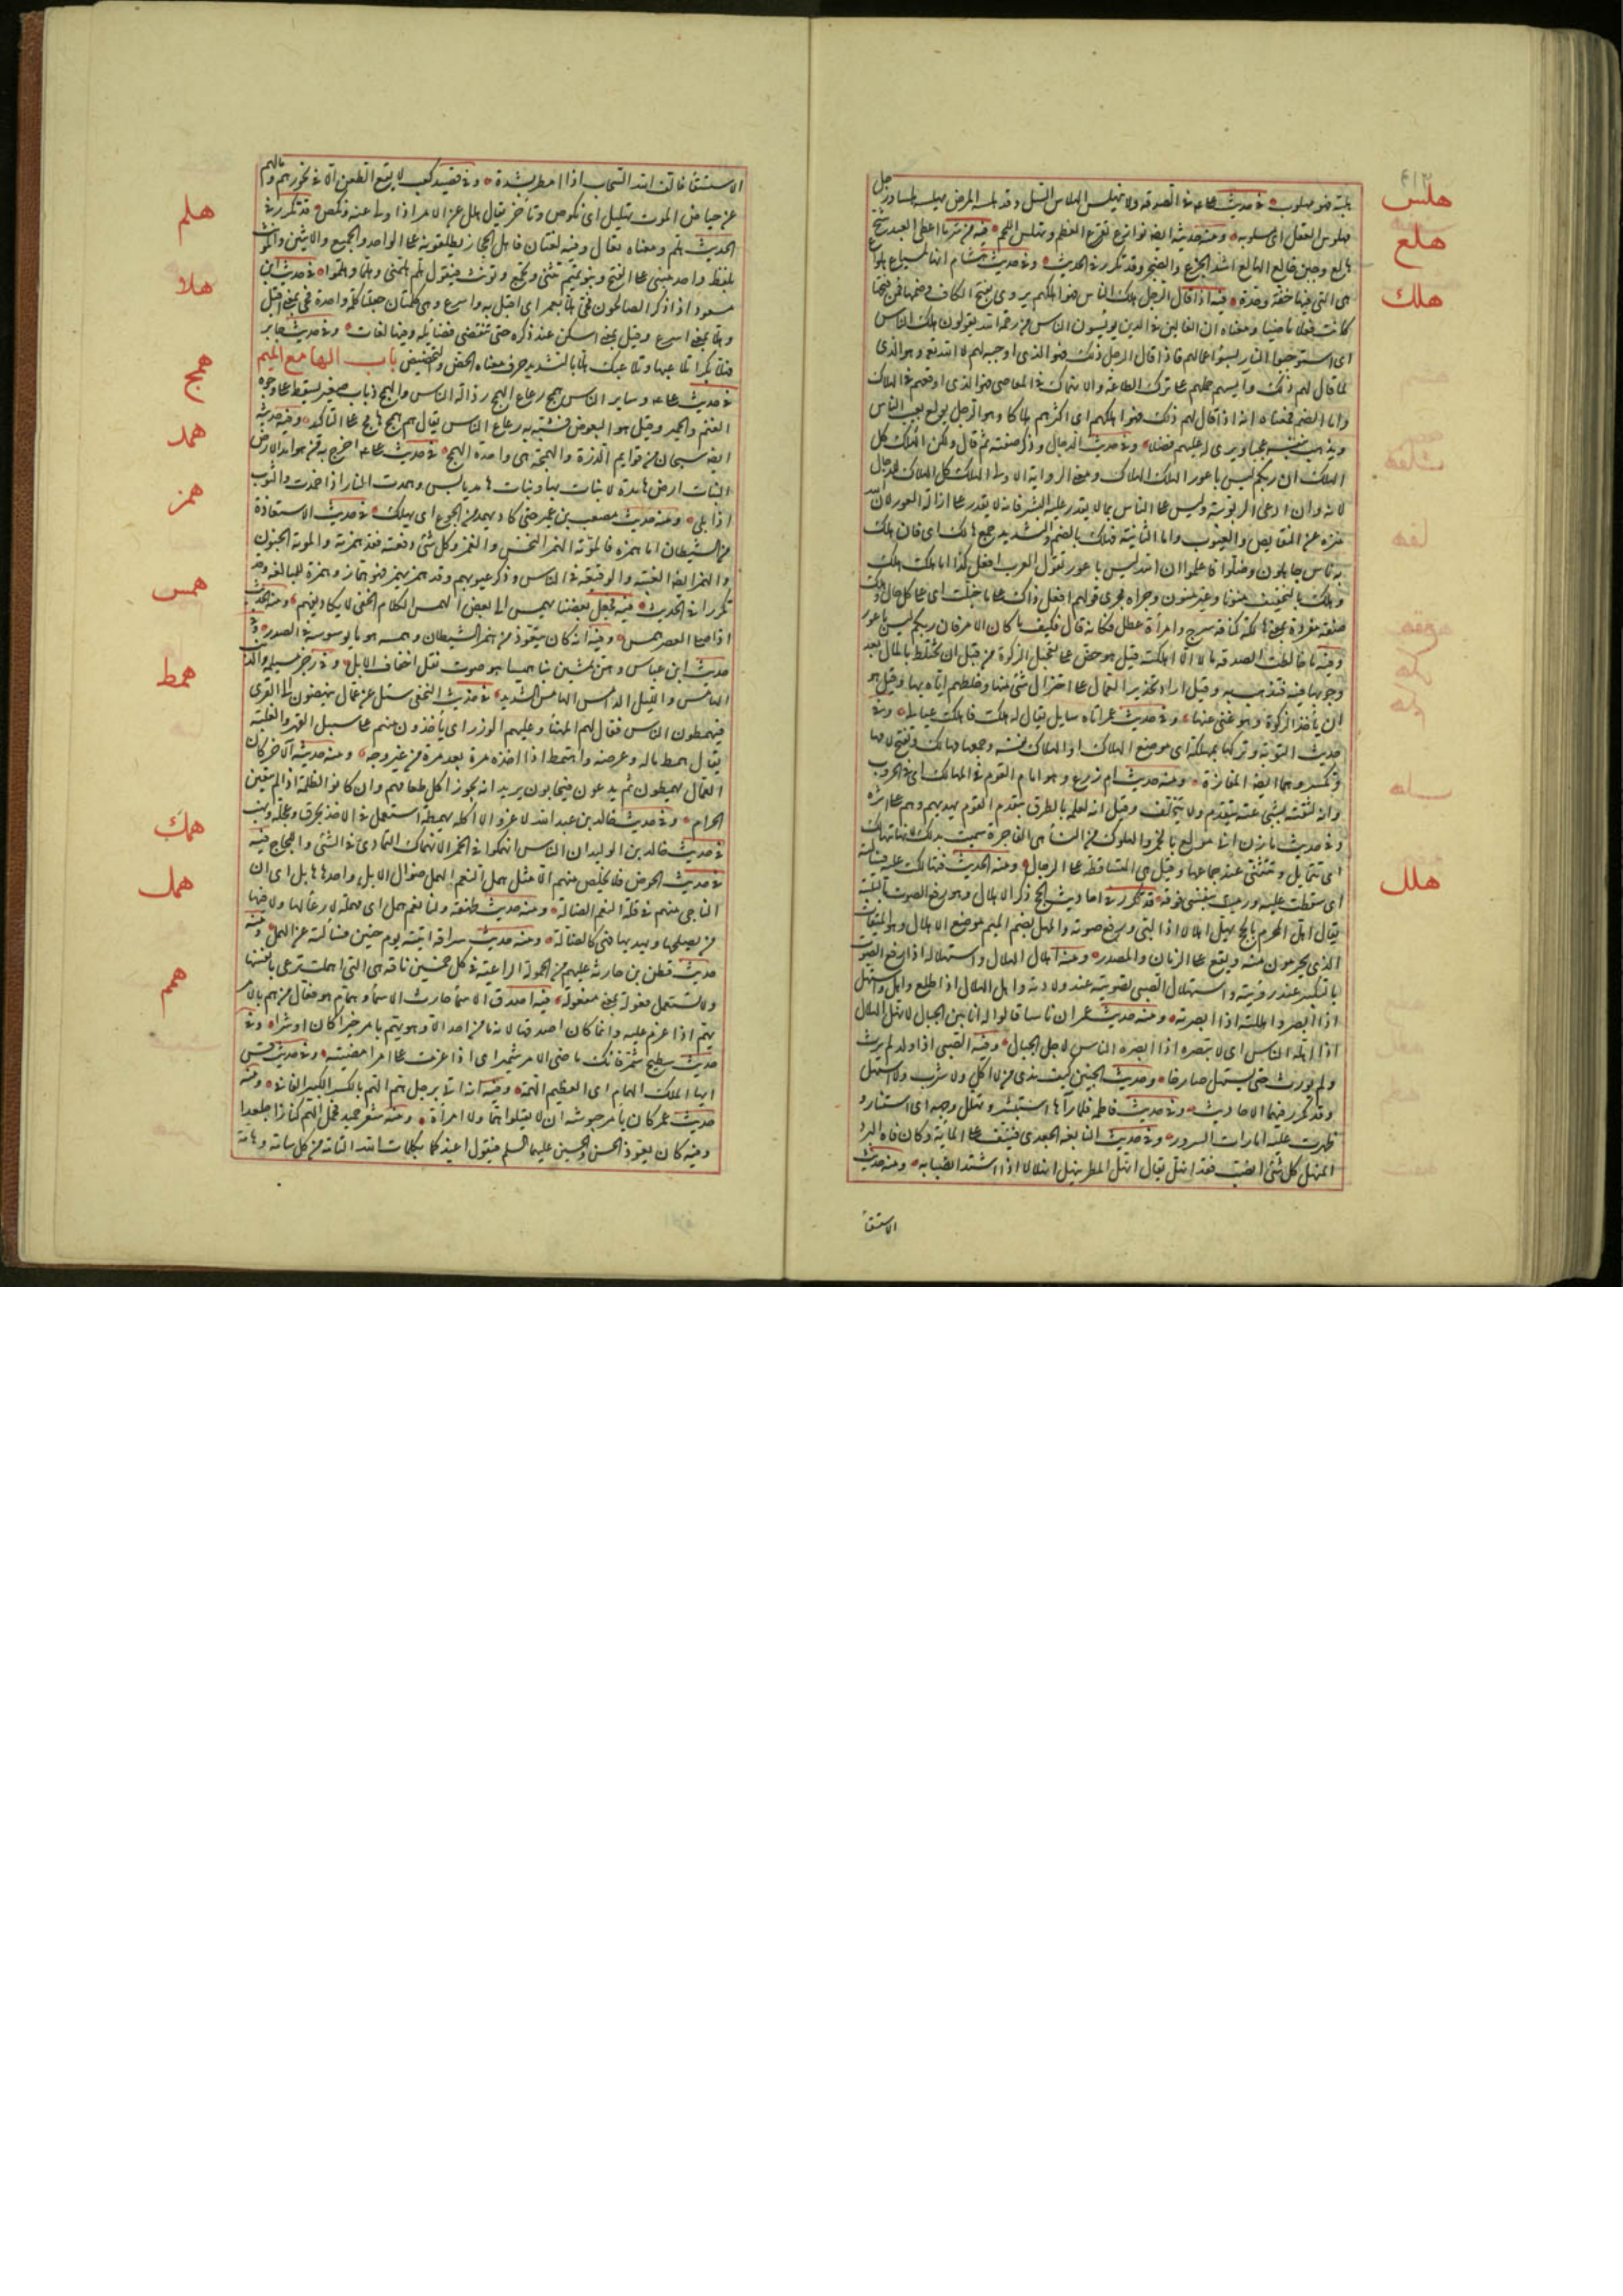 هلس
هلبته فهو مهلوب في حديث علي في الصدقة ولا ينهلس الهلاس السل وقد هلسه المرض يهلسه هلسا ورجل
مهلوس العقل اي مسلوبه ومنه حديثه ايضا نوازع تقرع العظم وتهلس اللحم فيه من شر ما اعطى العبد شح
هلع
هالع وجبن خالع الهلع اشد الجزع والضجر وقد تكرر في الحديث وفي حديث هشام انها لمسياع هلواع
هلك
هي التي فيها خفة وحدة فيه اذا قال الرجل هلك الناس فهو اهلكهم يروى بفتح الكاف وضمها فمن فتحها
كانت فعلا ماضيا ومعناه ان الغالين الذين يويسون الناس من رحمة الله يقولون هلك الناس
اي استوجبوا النار بسوء اعمالهم فاذا قال الرجل ذلك فهو الذي اوجبه لهم لا الله تع وهو الذي
لما قال لهم ذلك وآيسهم حملهم على ترك الطاعة والانهماك في المعاصي فهو الذي اوقعهم في الهلاك
واما الضم فمعناه انه اذا قال لهم ذلك فهو اهلكهم اي اكثرهم هلاكا وهو الرجل يولع بعيب الناس
ويذهب بنفسه عجبا ويرى له عليهم فضلا وفي حديث الدجال وذكر صفته ثم قال ولكن الهلك كل
الهلك ان ربكم ليس باعور الهلك الهلاك ومعنى الرواية الاولى الهلاك كل الهلاك للدجال
لانه وان ادعى الربوبية ولبس على الناس بما لا يقدر عليه البشر فانه لا يقدر على ازالة العور لان الله
منزه عن النقايص والعيوب واما الثانية فهلك بالضم والتشديد جمع هالك اي فان هلك
به ناس جاهلون وضلوا فاعلموا ان الله ليس باعور تقول العرب افعل كذا اما هلكت هلك
وهلك بالتخفيف منونا وغير منون ومجراه مجرى قولهم افعل ذاك على ما خيلت اي على كل حال وهلك
صفة مفردة بمعنى هالكة كناقة سرح وامرأة عطل فكانه قال فكيف ما كان الامر فان ربكم ليس باعور
وفيه ما خالطت الصدقة مالا الا اهلكته قيل هو حض على تعجيل الزكوة من قبل ان تختلط بالمال بعد
وجوبها فيه فتذهب به وقيل اراد تحذير العمال على اختزال شئ منها وخلطهم اياه بها وقيل هو
ان يأخذ الزكوة وهو غني عنها وفي حديث عمر اتاه سايل يقال له هلكت فاهلكت عيالي وفي
حديث التوبة وتركها بمهلكة اي موضع الهلاك او الهلاك نفسه وجمعها مهالك وتفتح لامها
وتكسر وهما ايضا المفازة ومنه حديث ام زرع وهو امام القوم في المهالك اي في الحروب
وانه لثقته بشجاعته يتقدم ولا يتخلف وقيل انه لعلمه بالطرق يتقدم القوم يهديهم وهم على اثره
وفي حديث مازن اني مولع بالخمر والهلوك من النسا هي الفاجرة سميت بذلك لانها تتهالك
هلل
اي تتمايل وتتثنى عند جماعها وقيل هي المتساقطة على الرجال ومنه الحديث فتهالكت عليه فسألته
اي سقطت عليه ورميت بنفسي فوقه قد تكرر في احاديث الحج ذكر الاهلال وهو رفع الصوت بالتلبية
يقال اهل المحرم بالحج يهل اهلالا اذا لبى ورفع صوته والمهل بضم الميم موضع الاهلال وهو الميقات
الذي يحرمون منه ويقع على الزمان والمصدر ومنه اهلال الهلال واستهلاله اذا رفع الصوت
بالتكبير عند رؤيته واستهلال الصبي تصويته عند ولادته واهل الهلال اذا طلع واهل واستهل
اذا ابصر واهللته اذا ابصرته ومنه حديث عمر ان ناسا قالوا له انا بين الجبال لا نهل الهلال
اذا اهله الناس اي لا نبصره اذا ابصره الناس لاجل الجبال وفيه الصبي اذا ولد لم يرث
ولم يورث حتى يستهل صارخا وحديث الجنين كيف ندي من لا اكل ولا شرب ولا استهل
وقد تكرر فيهما الاحاديث وفي حديث فاطمة فلما رآها استبشر وتهلل وجهه اي استنار و
ظهرت عليه امارات السرور وفي حديث النابغة الجعدي فنيف على الماية وكان فاه البرد
المنهل كل شئ انصب فقد انهل يقال انهل المطر ينهل انهلالا اذا اشتد انصبابه ومنه حديث
الاستسقا
الاستسقا فالف الله السحاب اذا امطر بشدة وفي قصيد كعب لا يقع الطعن الا في نحورهم وما لهم
هلم
عن حياض الموت تهليل اي نكوص وتأخر يقال هلل عن الامر اذا ولى عنه ونكص قد تكرر في
الحديث هلم ومعناه تعال وفيه لغتان فاهل الحجاز يطلقونه على الواحد والجميع والاثنين والمؤنث
هلا
بلفظ واحد مبني على الفتح وبنو تميم تثني وتجمع وتؤنث فيقول هلم وهلمي وهلما وهلموا في حديث ابن
مسعود اذا ذكر الصالحون فحي هلا بعمر اي اقبل به واسرع وهي كلمتان جعلتا كلمة واحدة فحي بمعنى اقبل
وهلا بمعنى اسرع وقيل بمعنى اسكن عند ذكره حتى تنقضي فضايله وفيها لغات وفي حديث جابر
همج
فهلا بكرا تلاعبها وتلاعبك هلا بالتشديد حرف معناه الحض والتحضيض باب الها مع الميم
في حديث علي وساير الناس همج رعاع الهمج رذالة الناس والهمج ذباب صغير يسقط على وجوه
الغنم والحمير وقيل هو البعوض فشبه به رعاع الناس يقال هم همج هامج على التأكيد ومنه حديثه
همد
ايضا سبحان من ادمج قوايم الذرة والهمجة هي واحدة الهمج في حديث علي اخرج به من هوامد الارض
النبات ارض هامدة لا نبات بها ونبات هامد يابس وهمدت النار اذا خمدت والثوب
همز
اذا بلي ومنه حديث مصعب بن عمير حتى كاد يهمد من الجوع اي يهلك في حديث الاستعاذة
من الشيطان اما همزه فالموتة الهمز النخس والغمز وكل شئ دفعته فقد همزته والموتة الجنون
والهمز ايضا الغيبة والوقيعة في الناس وذكر عيوبهم وقد همز يهمز فهو هماز وهمزة للمبالغة وقد
همس
تكرر في الحديث فيه فجعل بعضنا يهمس الى بعض الهمس الكلام الخفي لا يكاد يفهم ومنه الحديث
اذا صلى العصر همس وفيه انه كان يتعوذ من همز الشيطان وهمسه هو ما يوسوسه في الصدور وفي
حديث ابن عباس وهن يمشين بنا هميسا هو صوت نقل اخفاف الابل وفي رجز مسيلمة والذئب
همط
الهامس والليل الدامس الهامس الشديد في حديث النخعي سئل عن عمال ينهضون الى القرى
فيهمطون الناس فقال لهم المهنأ وعليهم الوزر اي يأخذون منهم على سبيل القهر والغلبة
يقال همط ماله وعرضه واهتمط اذا اخذه مرة بعد مرة من غير وجه ومنه حديثه الآخر كان
العمال يهمطون ثم يدعون فيجابون يريد انه يجوز اكل طعامهم وان كانوا ظلمة اذا لم يتعين
الحرام وفي حديث خالد بن عبد الله لا غرو الا اكلة بهمطة استعمل في الاخذ بخرق وعجلة ونهب
همك
في حديث خالد بن الوليد ان الناس انهمكوا في الخمر الانهماك التمادي في الشئ واللجاج فيه
همل
في حديث الحوض فلا يخلص منهم الا مثل همل النعم الهمل ضوال الابل واحدها هامل اي ان
الناجي منهم في قلة النعم الضالة ومنه حديث طهفة ولنا نعم همل اي مهملة لا رعاء لها ولا فيها
من يصلحها ويهديها فهي كالضالة ومنه حديث سراقة اتيته يوم حنين فسألته عن الهمل ومنه
حديث قطن بن حارثة عليهم من الحمولة الراعية في كل خمسين ناقة هي التي اهملت ترعى بانفسها
همم
ولا تستعمل فعولة بمعنى مفعولة فيه اصدق الاسما حارث الاسما وهمام هو فعال من هم بالامر
يهم اذا عزم عليه وانما كان اصدقها لانه ما من احد الا وهو يهم بامر خيرا كان او شرا وفي
حديث سطيح شمر فانك ماضي الامر شمير اي اذا عزمت على امر امضيته وفي حديث قس
ايها الملك الهمام اي العظيم الهمة وفيه انه اتى برجل هم الهم بالكسر الكبير الفاني ومنه
حديث عمر كان يأمر جيوشه ان لا يقتلوا هما ولا امرأة ومنه شعر حميد فحمل الهم كنازا جلعدا
وفيه كان يعوذ الحسن والحسين عليهما السلم فيقول اعيذكما بكلمات الله التامة من كل سامة وهامة